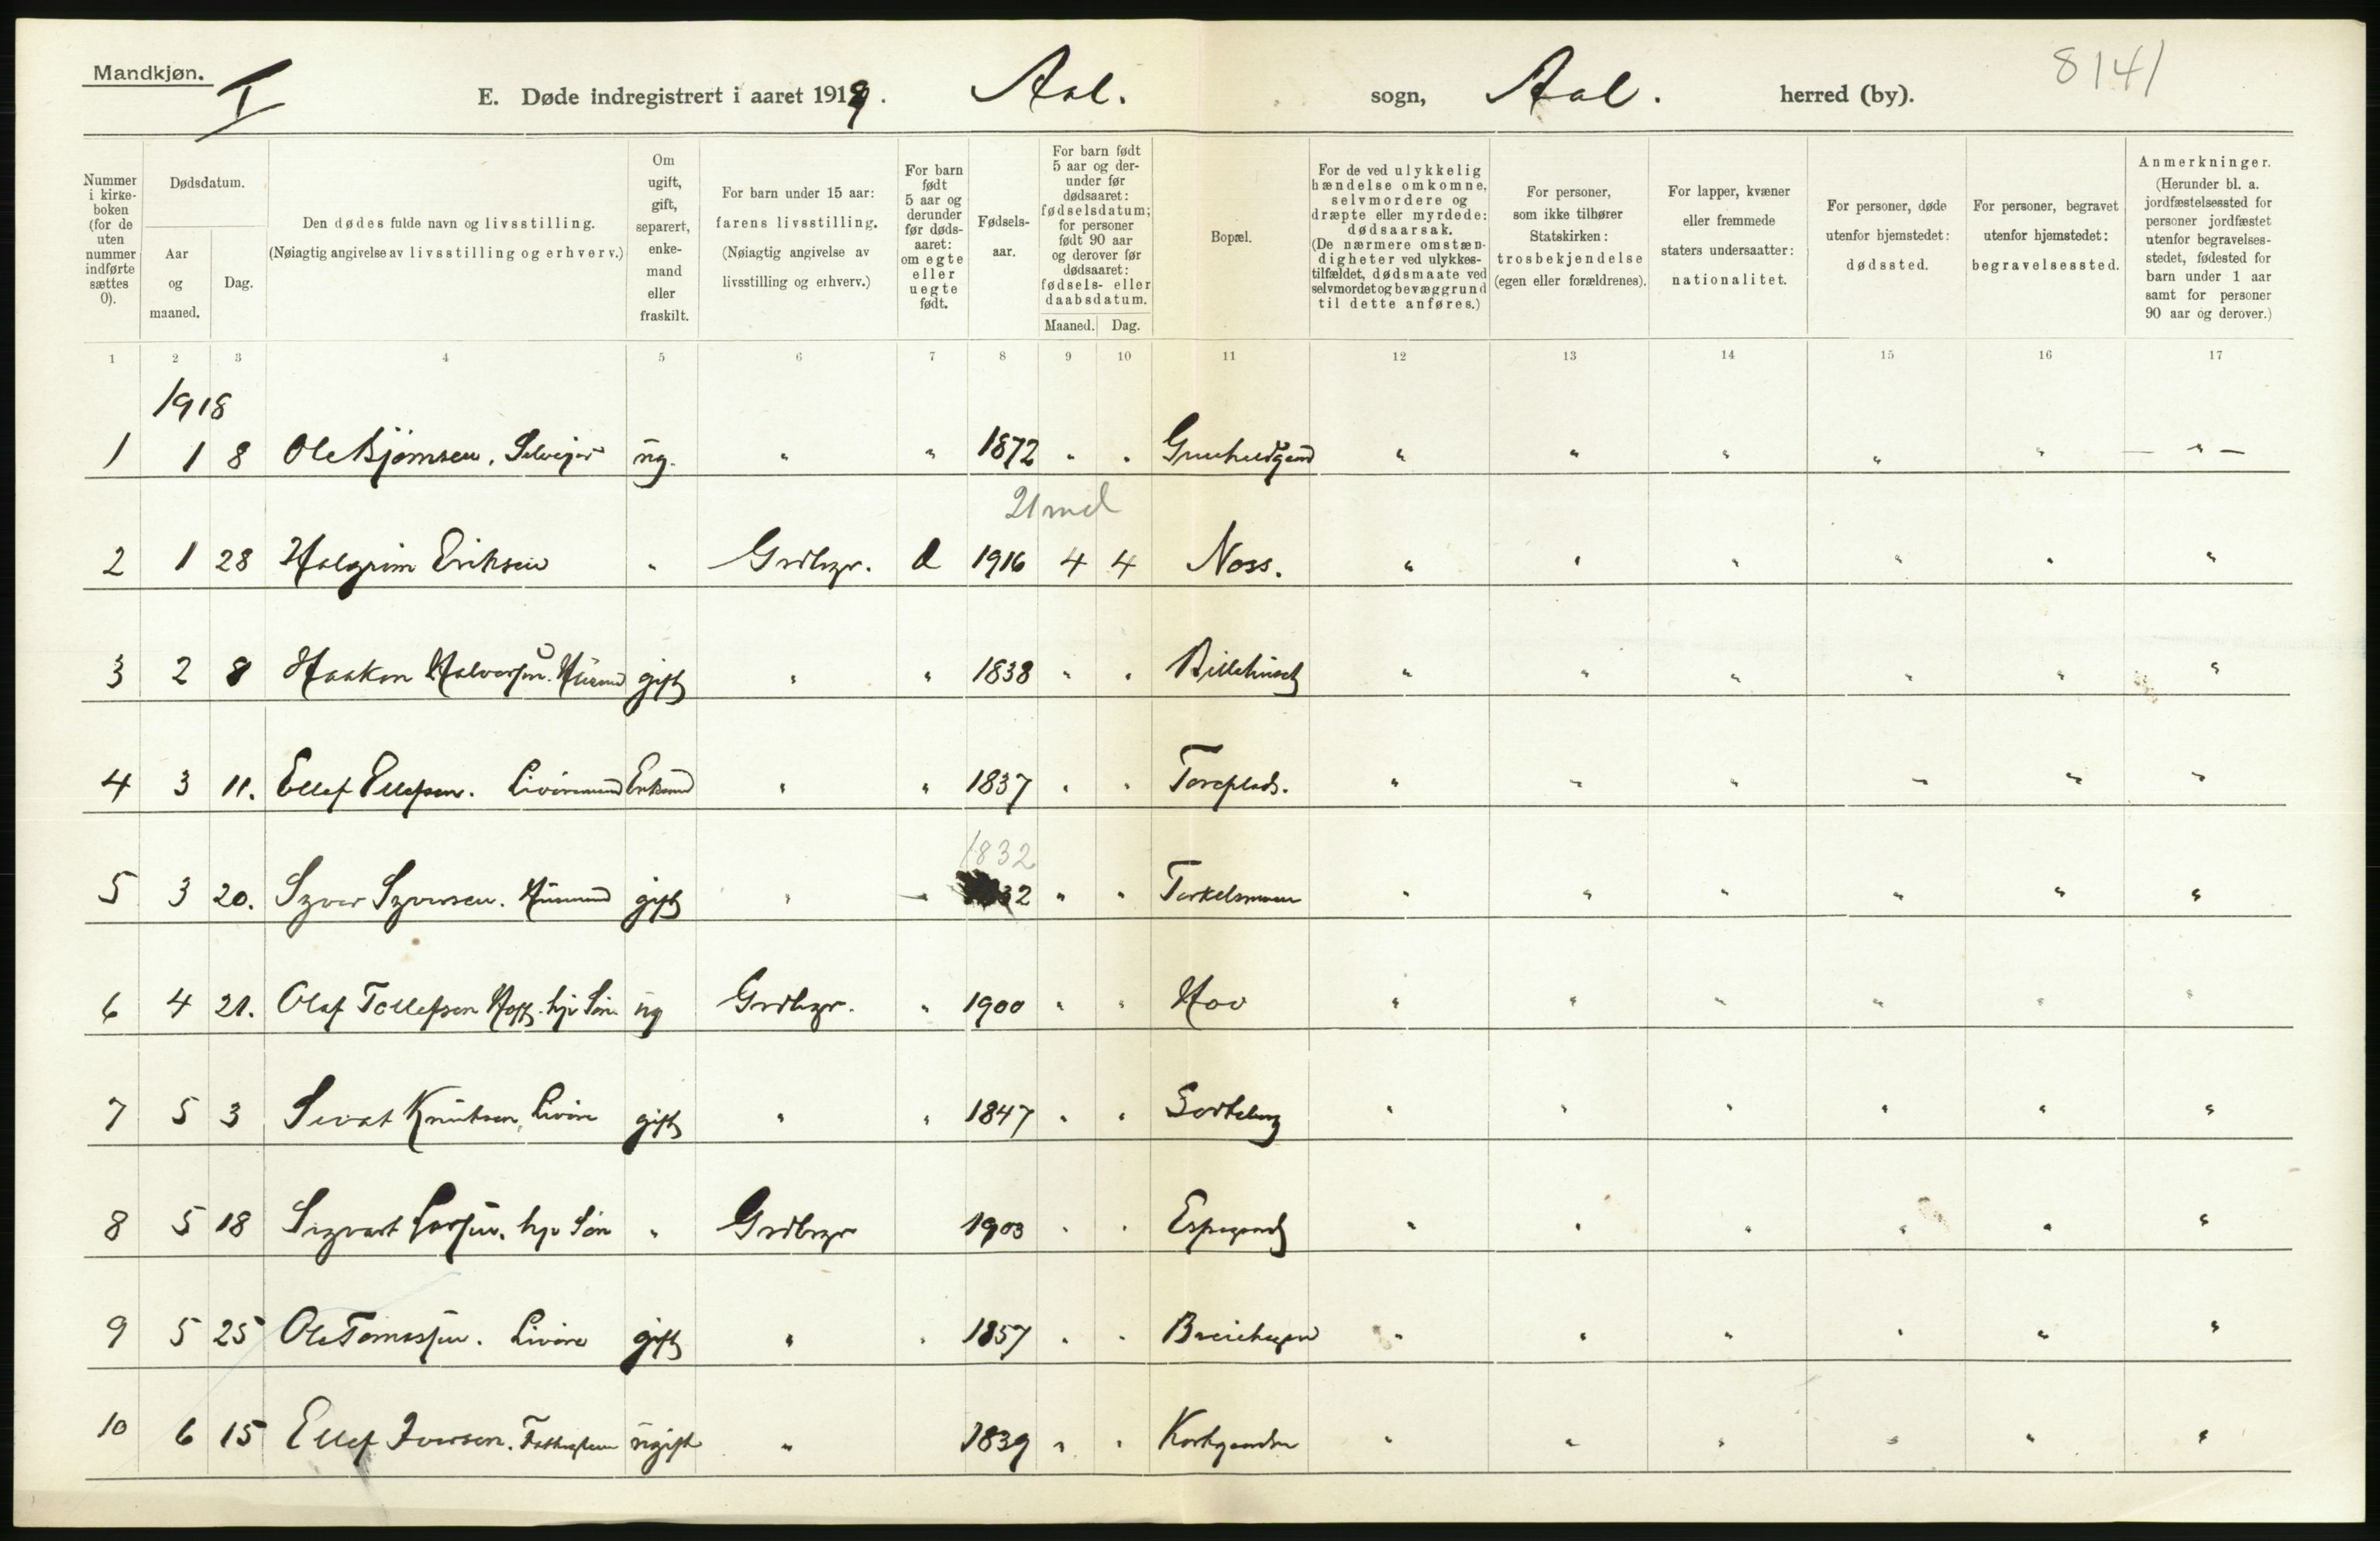 Mandkjøn.
I
E. Døde indregistrert i aaret 1918. Aal. sogn, Aal. herred (by).
8141
Nummer i kirkeboken (for de uten nummer indførte sættes 0).
Dødsdatum.
Aar og maaned.
Dag.
Den dødes fulde navn og livsstilling.
(Nøiagtig angivelse av livsstilling og erhverv.)
Om ugift, gift, separert, enkemand eller fraskilt.
For barn under 15 aar: farens livsstilling. (Nøiagtig angivelse av livsstilling og erhverv.)
For barn født 5 aar og derunder før dødsaaret: om egte eller uegte født.
Fødselsaar.
For barn født 5 aar og derunder før dødsaaret: fødselsdatum; for personer født 90 aar og derover før dødsaaret: fødsels- eller daabsdatum.
Maaned. Dag.
Bopæl.
For de ved ulykkelig hændelse omkomne, selvmordere og dræpte eller myrdede: dødsaarsak. (De nærmere omstændigheter ved ulykkestilfældet, dødsmaate ved selvmordet og bevæggrund til dette anføres.)
For personer, som ikke tilhører Statskirken: trosbekjendelse (egen eller forældrenes).
For lapper, kvæner eller fremmede staters undersaatter: nationalitet.
For personer, døde utenfor hjemstedet: dødssted.
For personer, begravet utenfor hjemstedet: begravelsessted.
Anmerkninger. (Herunder bl. a. jordfæstelsessted for personer jordfæstet utenfor begravelsesstedet, fødested for barn under 1 aar samt for personer 90 aar og derover.)
1 2 3 4 5 6 7 8 9 10 11 12 13 14 15 16 17
1918
1 1 8 Ole Bjørnsen, Selveier ug. " " 1872 " " " " " " " — " —
21 md
2 1 28 Halgrim Eriksen " Grdbrgr. 1916 4 4 Noss. " " " " " "
3 2 8 Haakon Halvorsen. Husmd gift " " 1838 " " " " " " " "
4 3 11. Ellef Ellefsen. Enkemd " " 1837 " " Toreplads. " " " " " "
1832
5 3 20. Syver Syversen. Husmd gift " - 32 " " Torkelsmoen " " " " " "
6 4 21. Olaf Tollefsen Hoff. hjv Søn ug Grdbrgr. " 1900 " " Hov " " " " " "
7 5 3 Sevat Knutsen, Livøre gift " " 1847 " " Sorteberg " " " " " "
8 5 18 Sigvart Larsen. hjv Søn " Grdbrgr 1903 " " Espegard " " " " " "
9 5 25 Ole Tomassen. Livøre gift " " 1857 " " " " " " " "
10 6 15 Ellef Iversen. ugift " 1839 " " " " " " " "